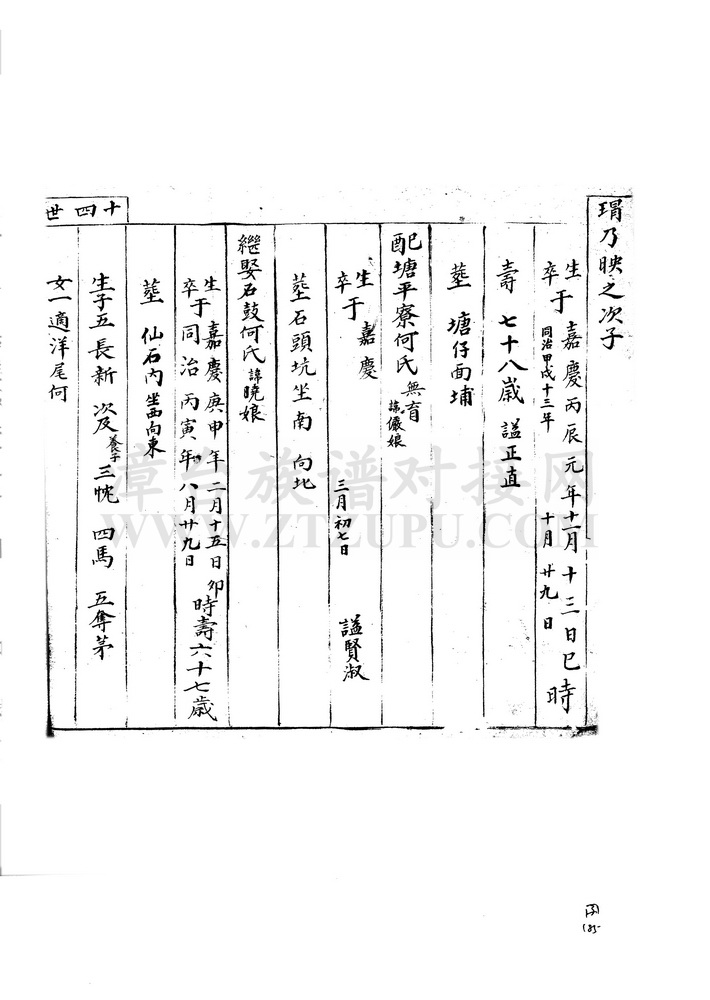 瑁乃映之次子
生于嘉慶丙辰元年十二月十三日巳時
卒于同治甲戌十三年十月廿九日
壽七十八歲 諡正直
塟塘仔面埔
配塘平寮何氏無育 諱儼娘
生于嘉慶
卒 三月初七日 諡賢淑
塟石頭坑坐南向北
繼娶石鼓何氏諱曉娘
生于嘉慶庚申年二月十五日卯時壽六十七歲
卒于同治丙寅年八月廿九日
塟仙石內坐西向東
生子五長新 次及養子 三㤞 四馬 五奪茅
女一適洋尾何
十四世
漳台族谱对接网
WWW.ZTZUPU.COM
185